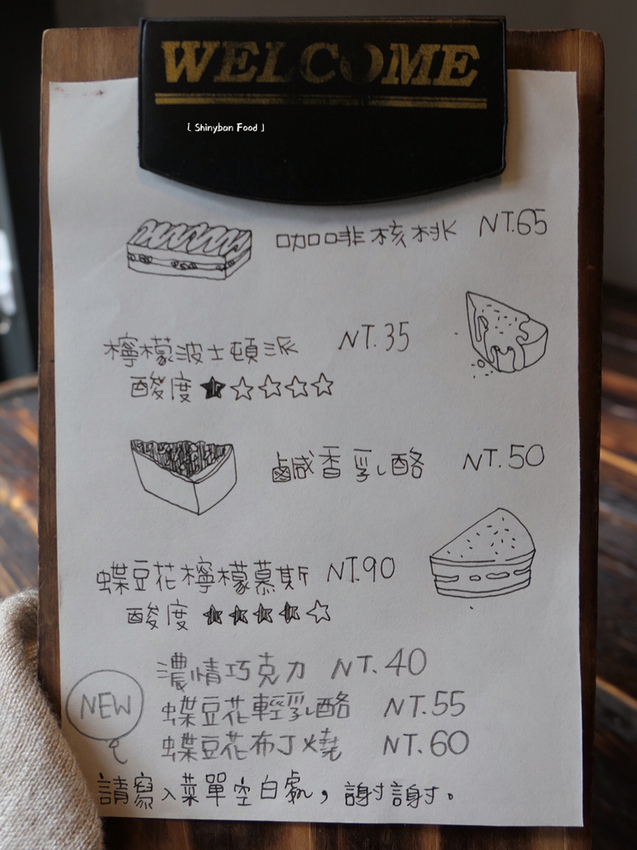 WELCOME
[ Shinyban Food ]
咖啡核桃 NT.65
檸檬波士頓派 NT.35
酸度★☆☆☆☆
鹹香乳酪 NT.50
蝶豆花檸檬慕斯 NT.90
酸度★★★★☆
濃情巧克力 NT.40
NEW
蝶豆花輕乳酪 NT.55
蝶豆花布丁燒 NT.60
請寫入菜單空白處，謝謝。